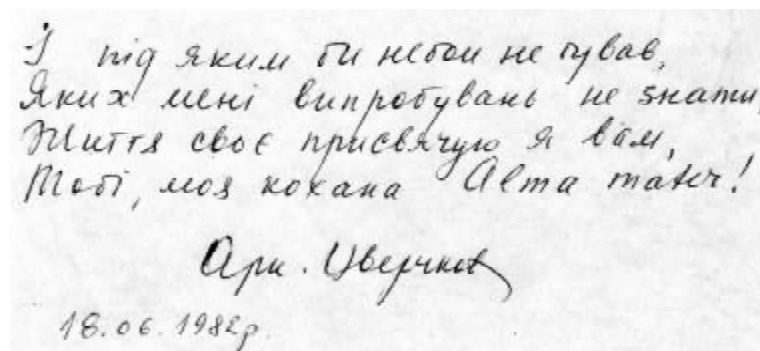 І під яким би небом не бував,
Яких мені випробувань не знати,
Життя своє присвячую я вам,
Тобі, моя кохана Alma mater!
Арк. Цверчков
18.06.1982р.